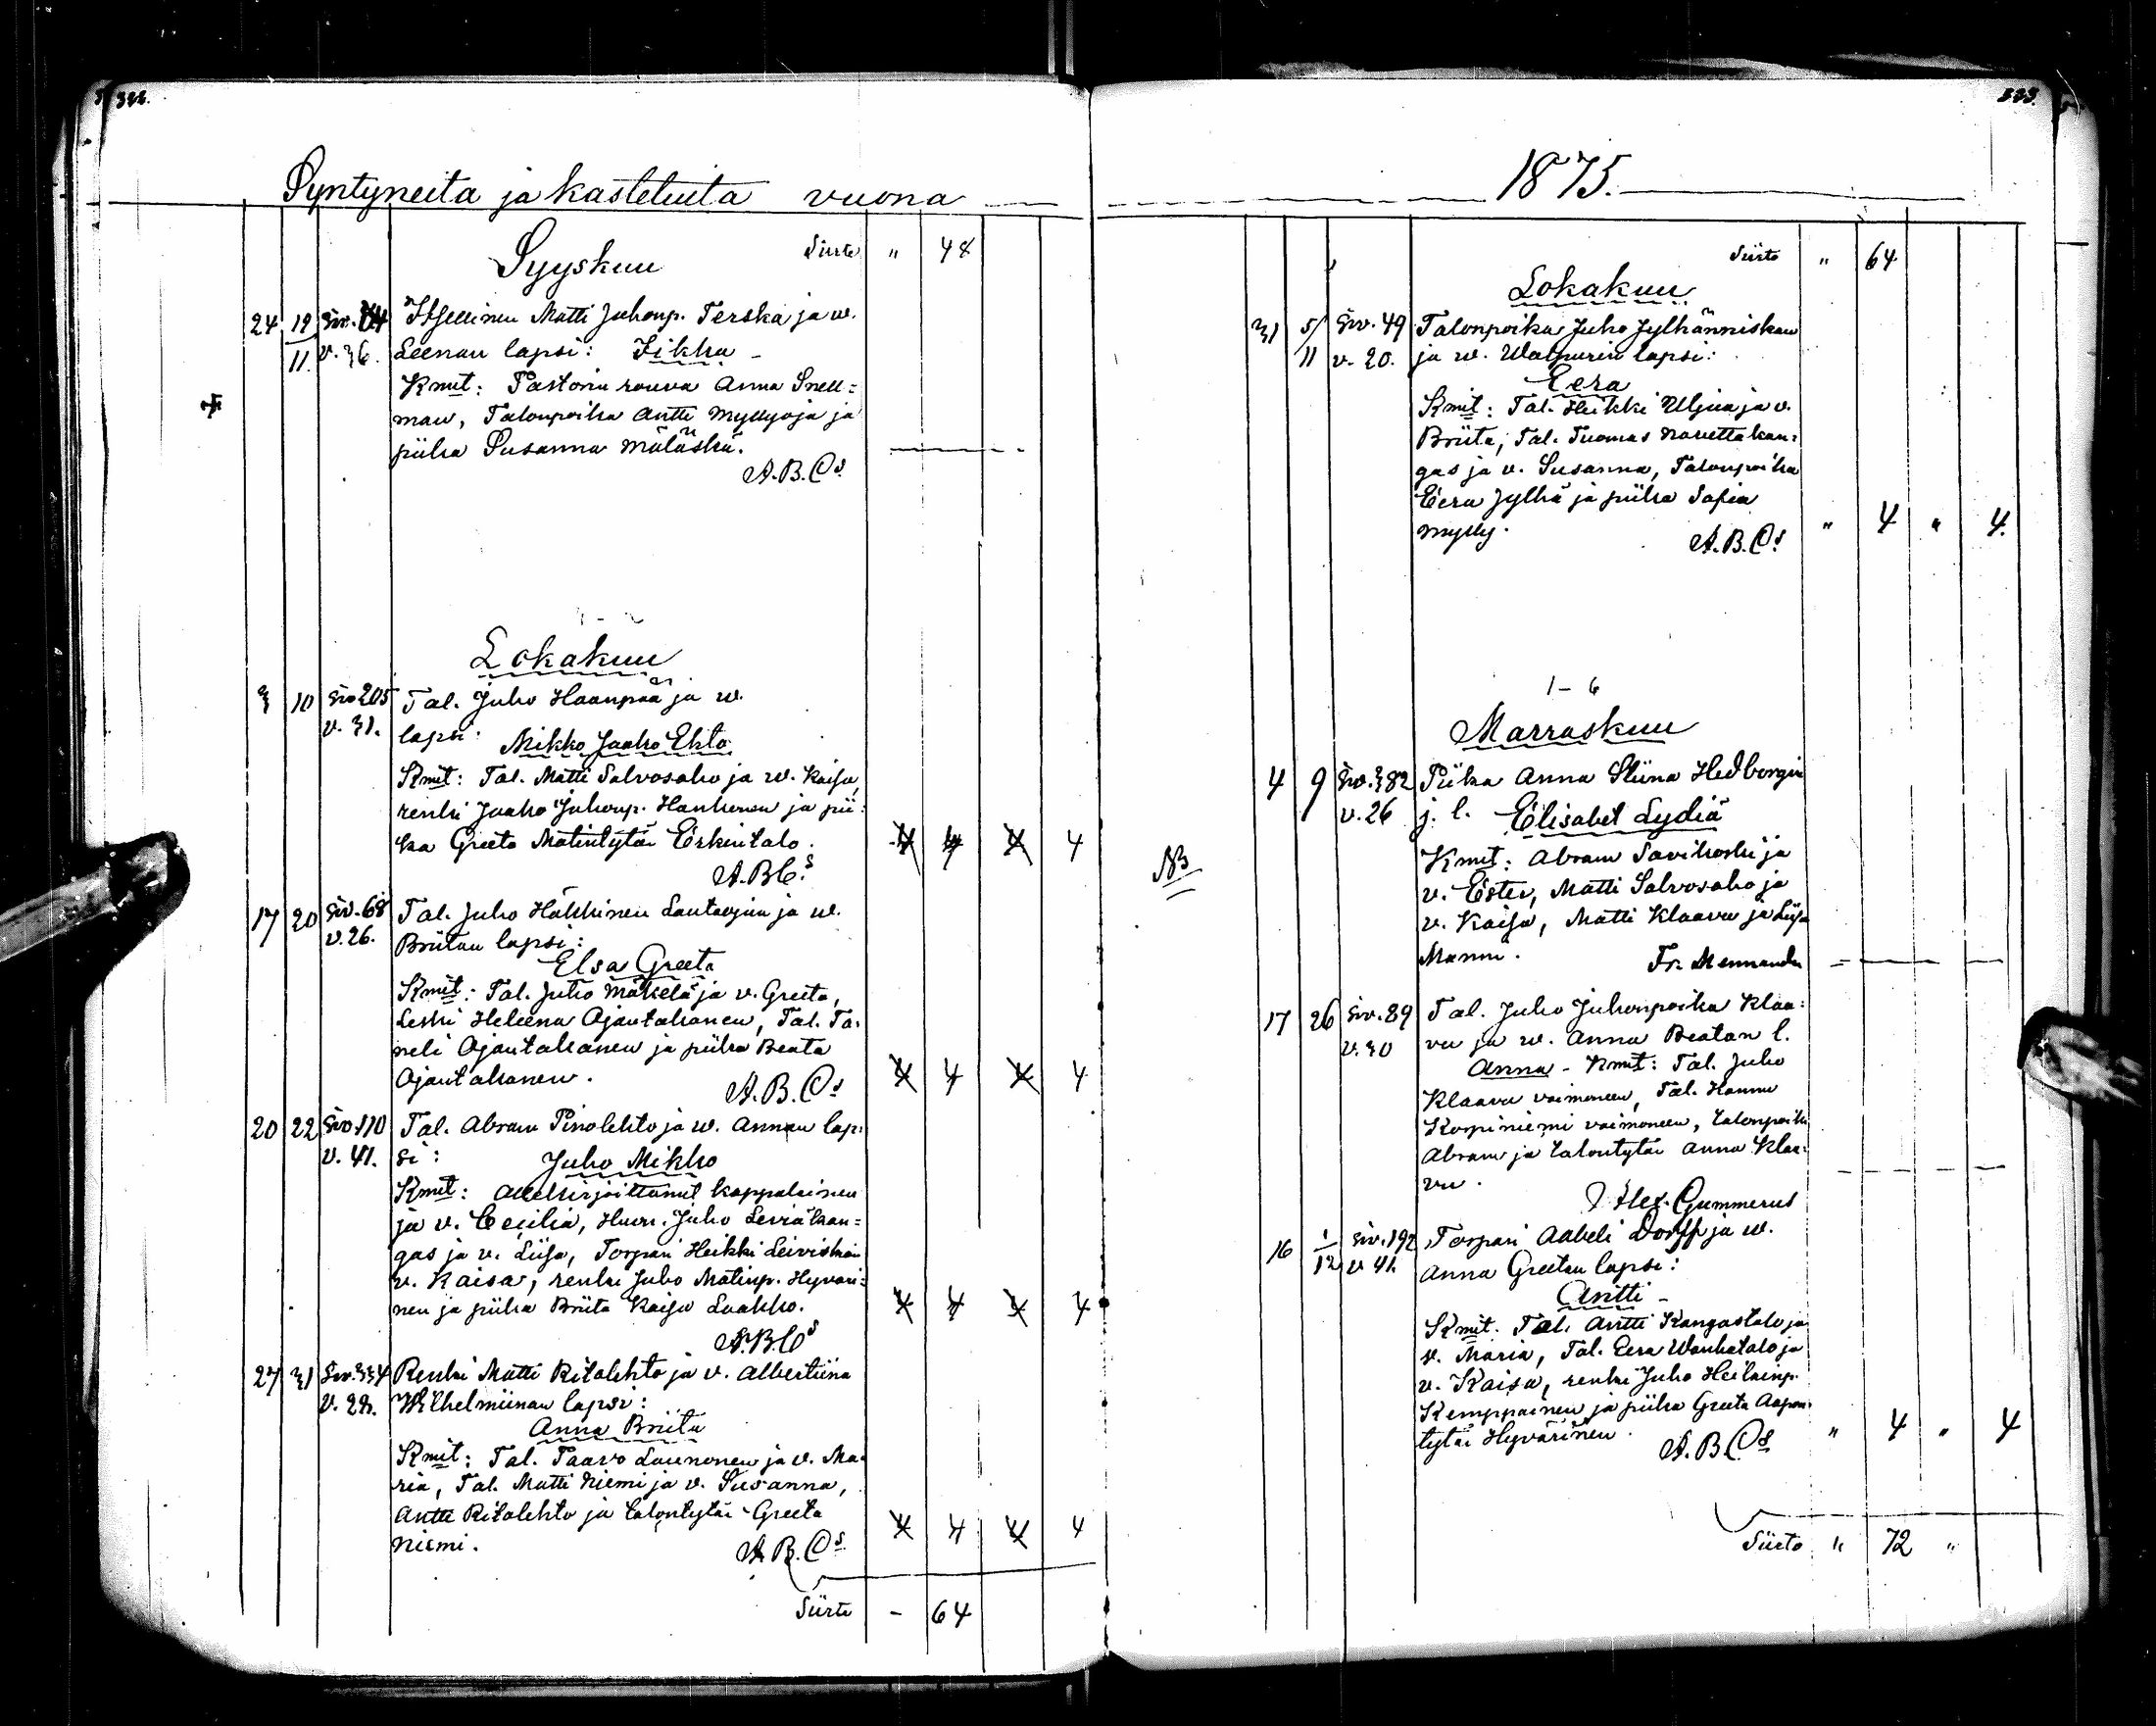 322.
Syntyneitä ja kastetuita vuona
Syyskuu Siirto " 48
24 12/11 Siv. v. 36. Itsellinen Matti Juhonp. Terska ja w.
Leenan lapsi: Fikka
Kmit: Pastorin rouva Anna Snell=
man, Talonpoika Antti Myllyoja ja
piika Susanna Mäläskä.
A.B.Cs.
Lokakuu
3 10 Siv 205 v. 31. Tal. Juho Haanpää ja w.
lapsi: Mikko Jaako Ehto
Kmit: Tal. Matti Salvosaho ja w. Kaisa,
renki Jaako Juhonp. Hanhinen ja pii=
ka Greeta Matintytär Erkintalo. 4 4 4 4
A.B.Cs.
17 20 Siv. 68 v. 26. Tal. Juho Häkkinen Lautaojan ja w.
Briitan lapsi:
Elsa Greeta
Kmit: Tal. Juho Mäkelä ja v. Greeta,
Leski Heleena Ajantakanen, Tal. Ta=
neli Ajantakanen ja piika Beata
Ajantakanen. 4 4 4 4
A.B.Cs
20 22 Siv. 110 v. 41. Tal. Abram Pinolehto ja w. Annan lap=
si: Juho Mikko
Kmit: Allekirjoittanut kappalainen
ja v. Cecilia, Huon. Juho Leviäkan=
gas ja v. Liisa, Torpari Heikki Leiviskän
v. Kaisa, renki Juho Matinp. Hyväri=
nen ja piika Briita Kaisa Laakko. 4 4 4 4
A.B.Cs
27 31 Siv. 334 v. 28. Renki Matti Ritalehto ja v. Albertiina
Wilhelmiinan lapsi:
Anna Briita
Kmit: Tal. Paavo Launonen ja v. Ma=
ria, Tal. Matti Niemi ja v. Susanna,
Antti Ritalehto ja talontytär Greeta
Niemi. 4 4 4 4
A.B.Cs
Siirto - 64
323.
1875.
Siirto " 64
Lokakuu
31 5/11 Siv. 49 v. 20. Talonpoika Juho Jylhänniskan
ja w. Walpurin lapsi:
Eera
Kmit: Tal. Heikki Uljua ja v.
Briita, Tal. Tuomas Navettakan=
gas ja v. Susanna, Talonpoika
Eera Jylhä ja piika Sofia
Mylly. " 4 " 4.
A.B.Cs
1 - 6
Marraskuu
4 9 Siv. 382 v. 26 Piika Anna Stiina Hedbergin
j. l. Elisabet Lydia
NB
Kmit: Abram Savikoski ja
v. Ester, Matti Salvosaho ja
v. Kaisa, Matti Klaavu ja Liisa
Manni.
Fr. Mennander
17 26 Siv. 89 v. 30 Tal. Juho Juhonpoika Klaa=
vu ja w. Anna Beatan l.
Anna - Kmit: Tal. Juho
Klaavu vaimoneen, Tal. Hannu
Korpiniemi vaimoneen, talonpoika
Abram ja talontytär Anna Klaa=
vu.
Alex. Gummerus
16 1/12 Siv. 192 v 41. Torpari Aabeli Dorff ja w.
Anna Greetan lapsi:
Antti
Kmit: Tal. Antti Kangastalo ja
v. Maria, Tal. Eera Wanhatalo ja
v. Kaisa, renki Juho Heikinp.
Kemppainen ja piika Greeta Aapon=
tytär Hyvärinen. " 4 " 4
A.B.Cs
Siirto " 72 "